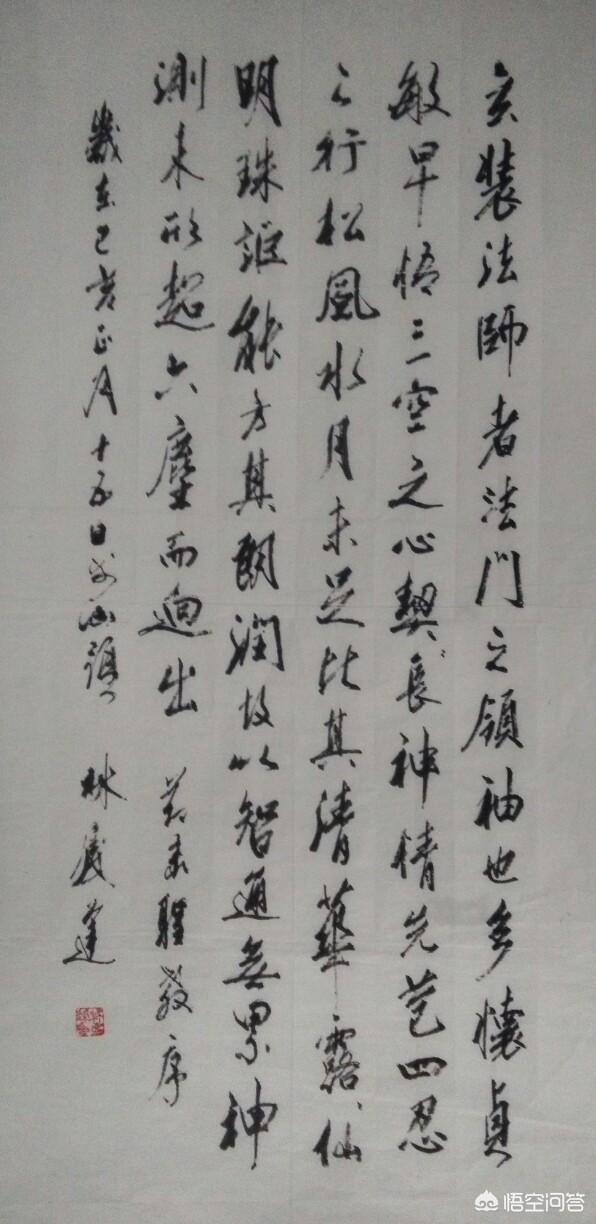 玄奘法師者法门之領袖也幼懷貞
敏早悟三空之心契長神情先苞四忍
之行松風水月未足比其清華露仙
明珠詎能方其朗潤故以智通無累神
測未形超六塵而迥出 節录聖教序
歲在己亥正月十五日於汕頭 林
悟空问答